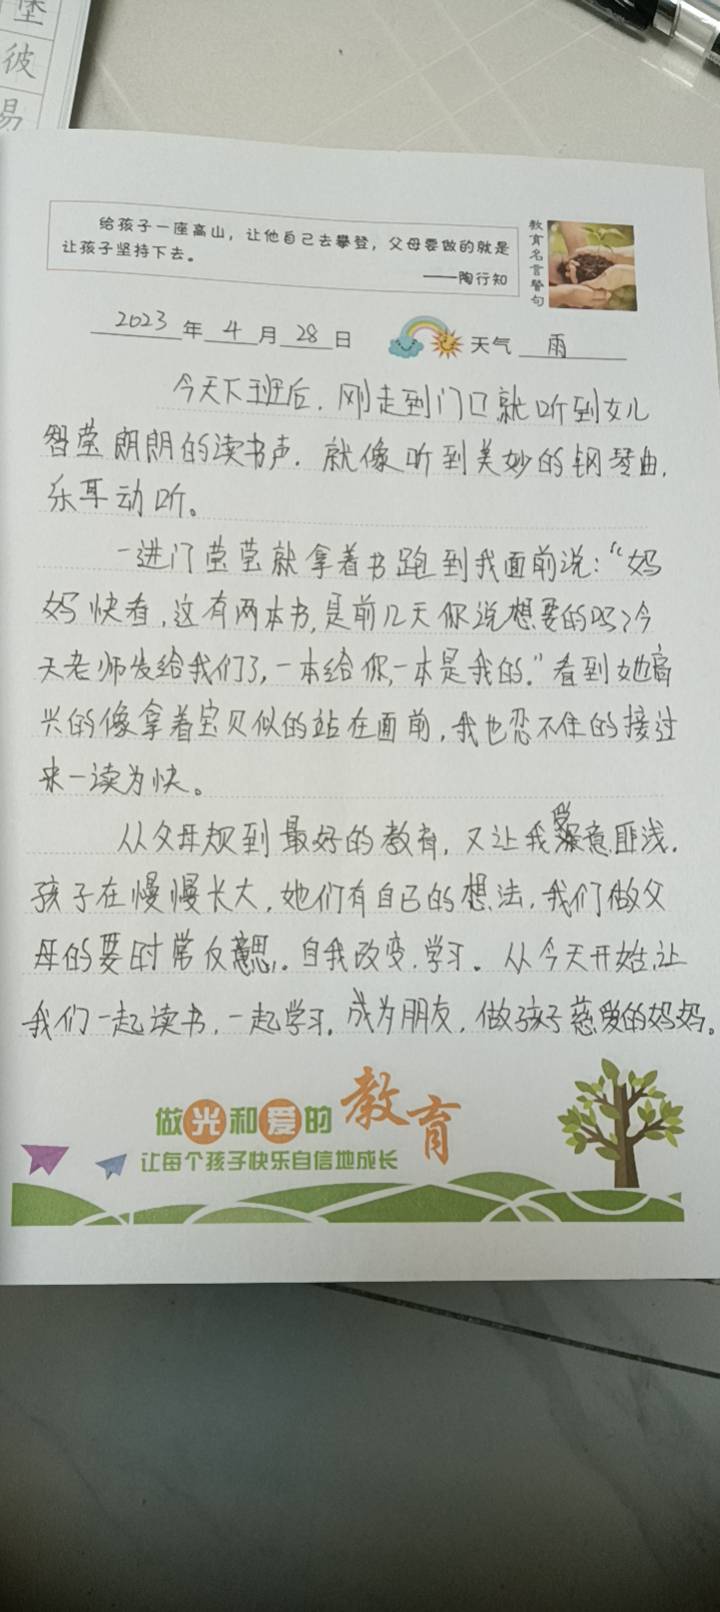 堡
彼
易
给孩子一座高山，让他自己去攀登，父母要做的就是
让孩子坚持下去。
——陶行知
教育名言警句
2023年4月28日 天气 雨
今天下班后，刚走到门口就听到女儿
智莹朗朗的读书声，就像听到美妙的钢琴曲，
乐耳动听。
一进门莹莹就拿着书跑到我面前说：“妈
妈快看，这有两本书，是前几天你说想要的吗？今
天老师发给我们了，一本给你，一本是我的。”看到她高
兴的像拿着宝贝似的站在面前，我也忍不住的接过
来一读为快。
从父母规到最好的教育，又让我受意匪浅。
孩子在慢慢长大，她们有自己的想法，我们做父
母的要时常反思。自我改变，学习。从今天开始，让
我们一起读书，一起学习，成为朋友，做孩子慈爱的妈妈。
做光和爱的教育
让每个孩子快乐自信地成长